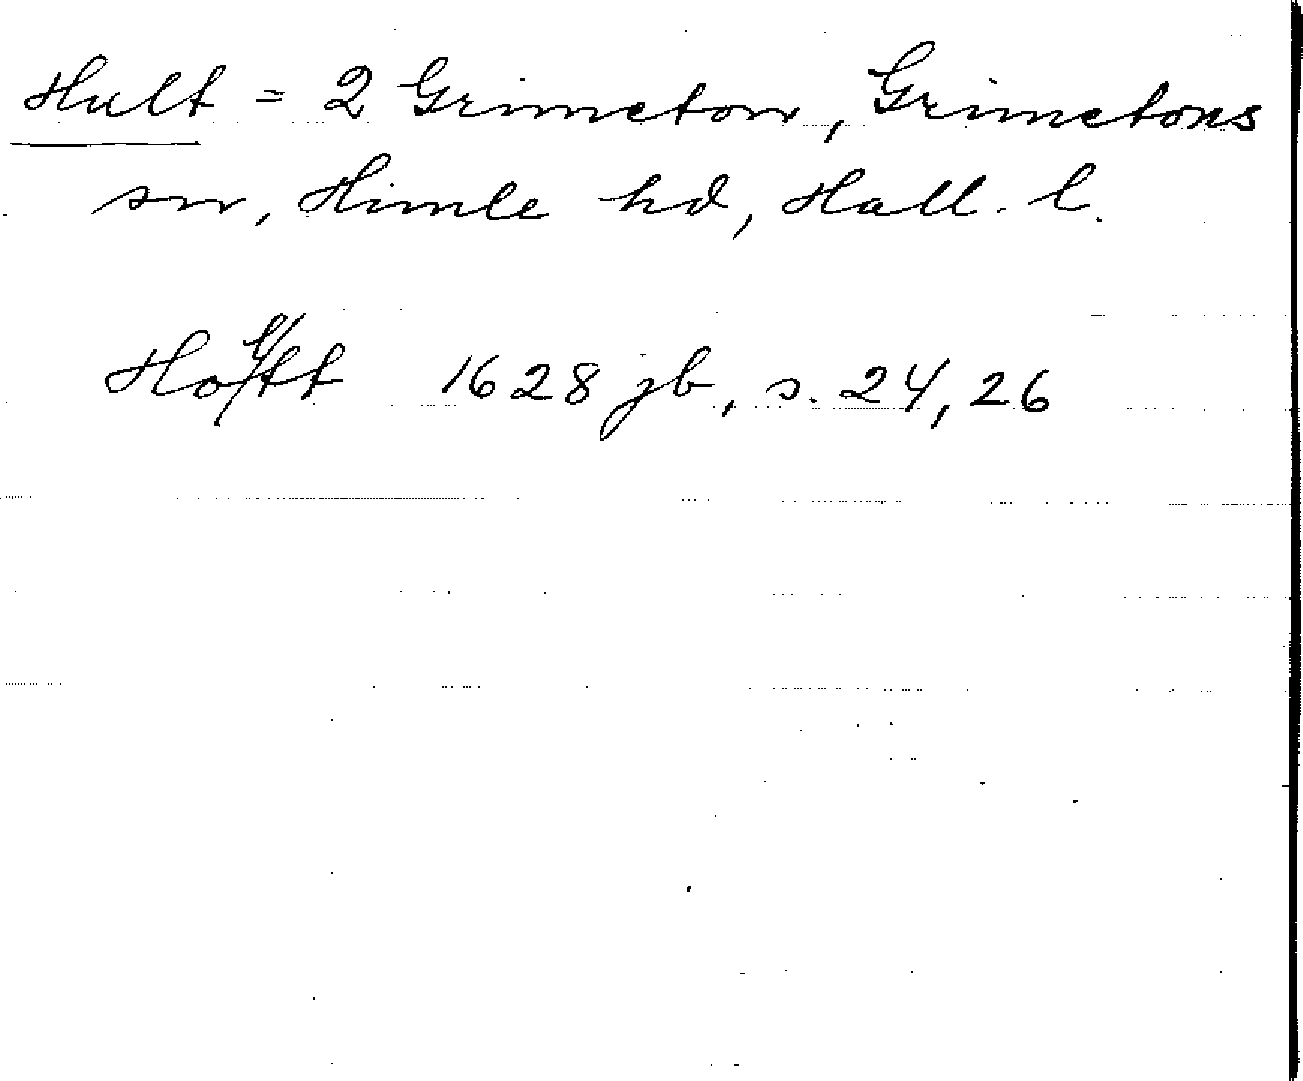 Hult = 2 Grimeton, Grimetons
sn, Himle hd, Hall. l.
Holtt 1628 jb, s. 24, 26